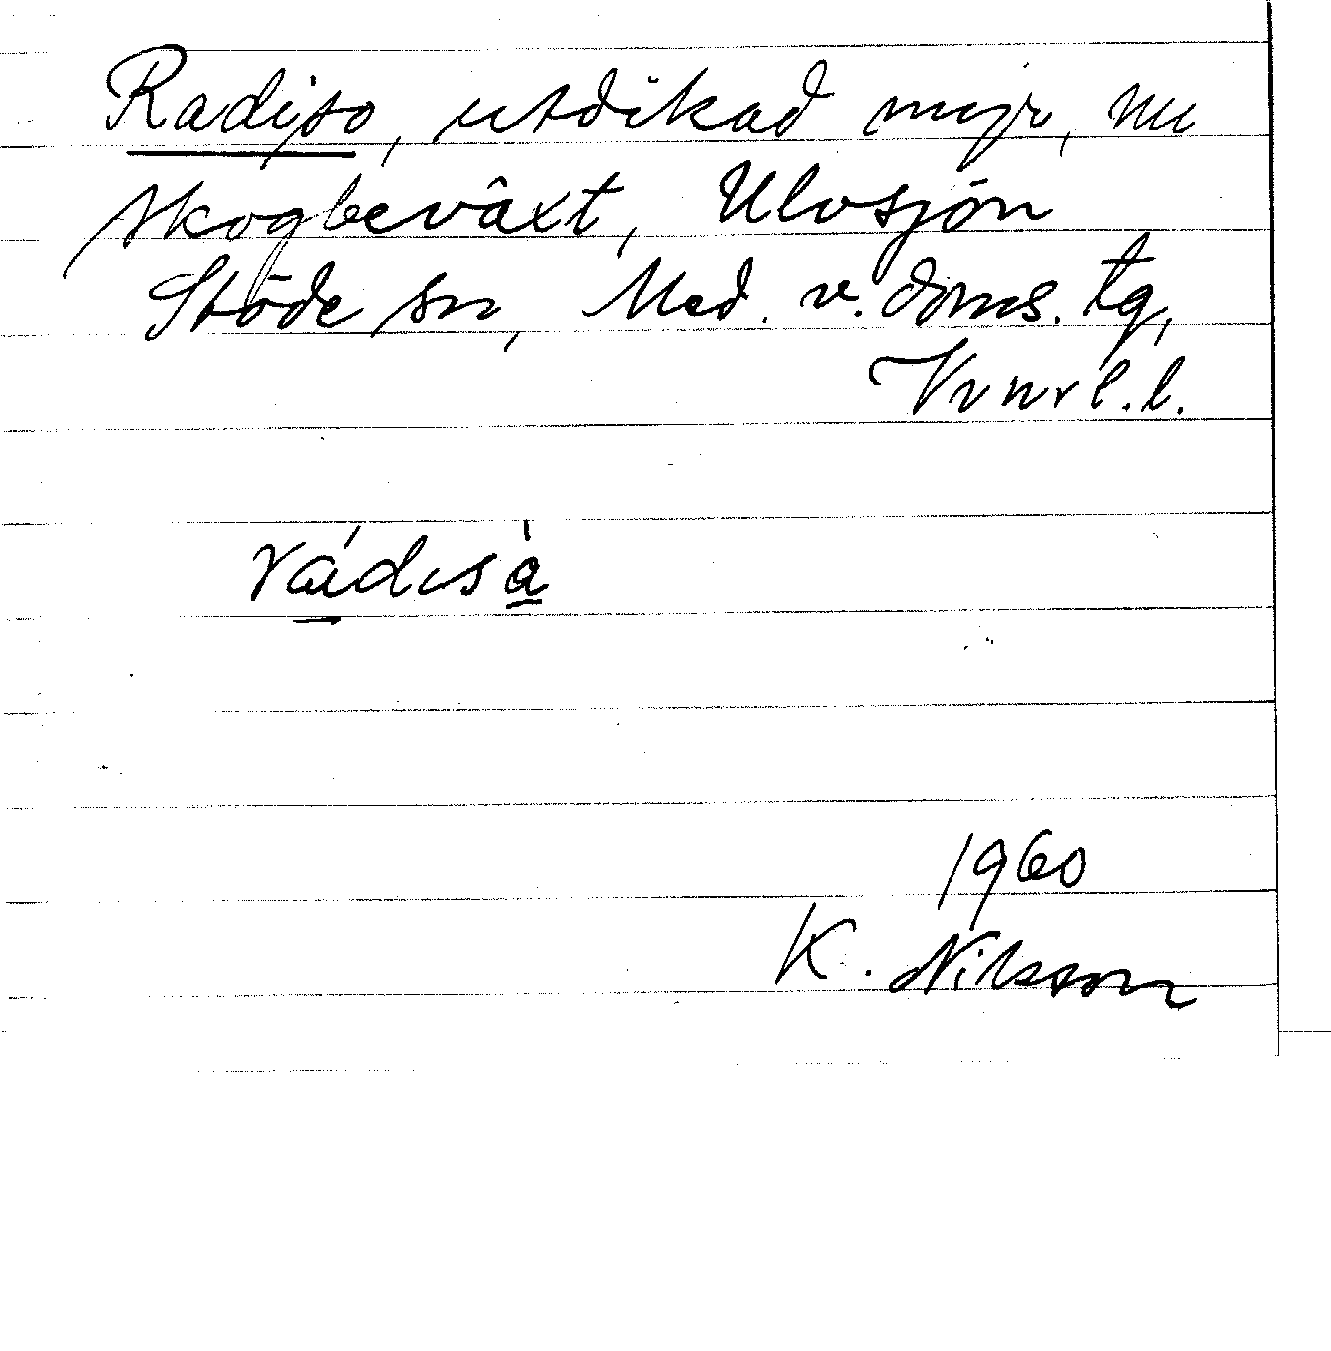 Radiso, utdikad myr, nu
skogbeväxt, Ulvsjön
Stöde sn, Med. v. doms. tg,
Vvnrl. l.
rádısà
1960
K. Nilsson